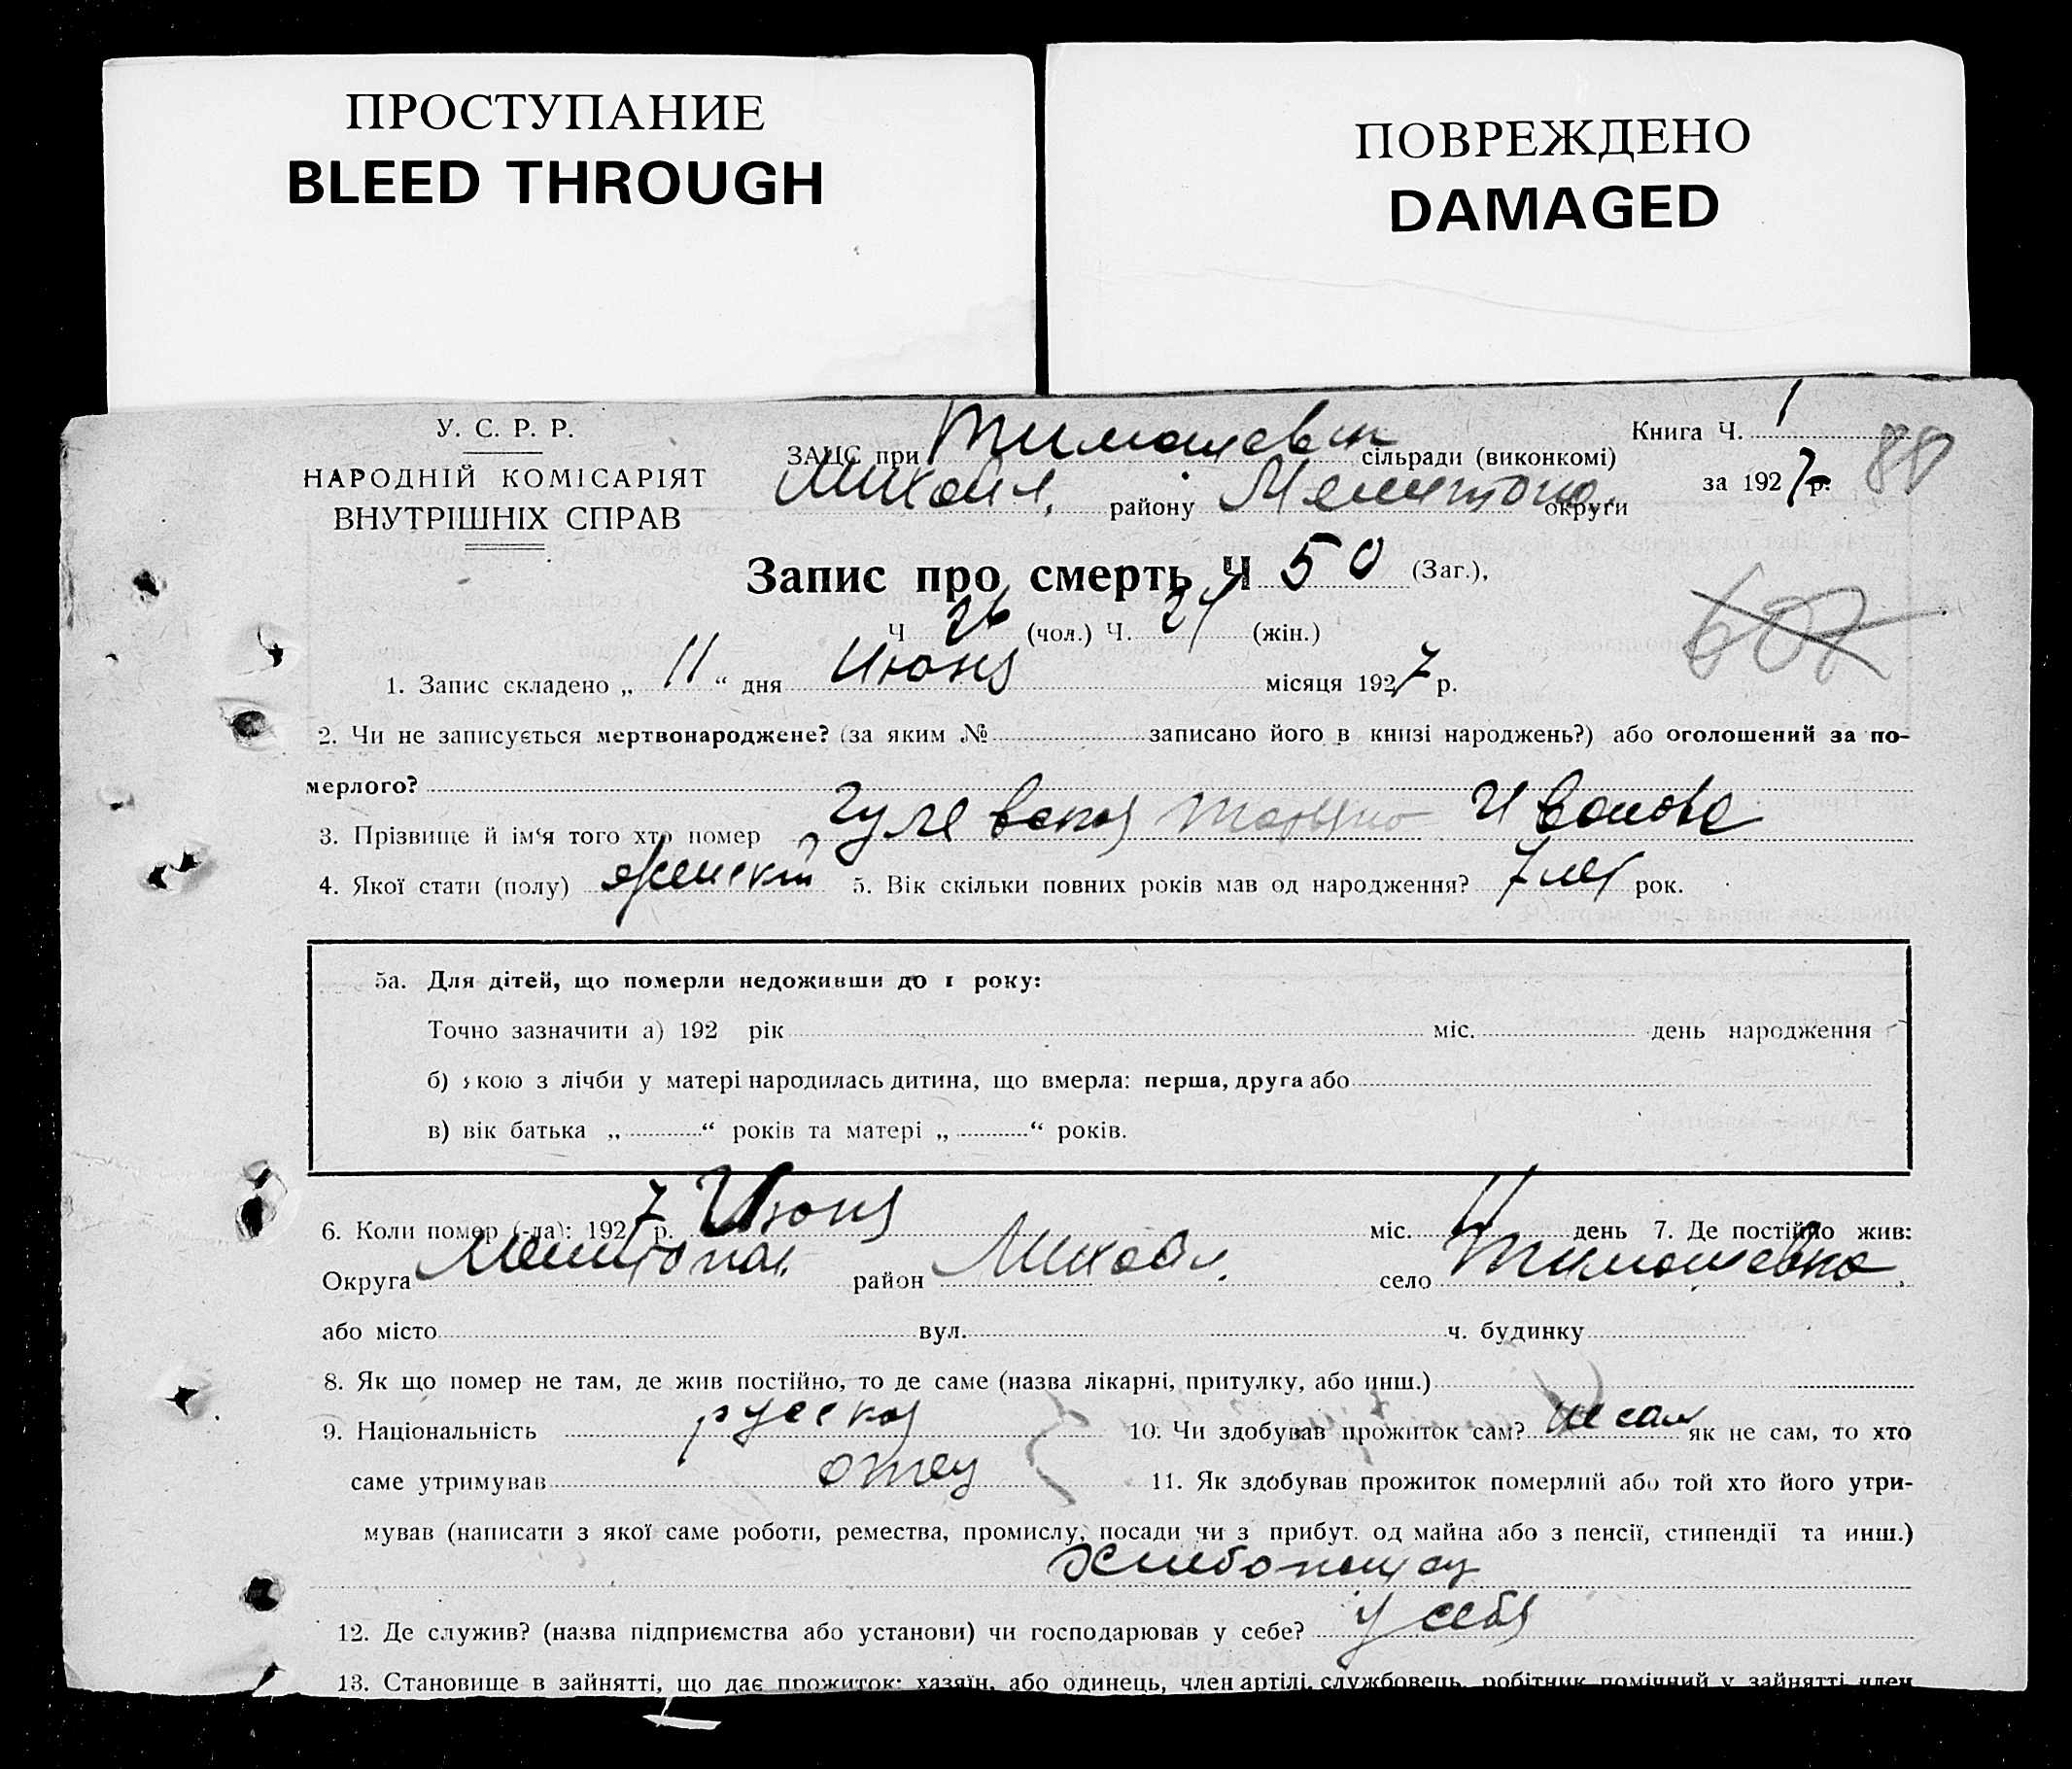 ПРОСТУПАНИЕ
BLEED THROUGH
ПОВРЕЖДЕНО
DAMAGED
У. С. Р. Р.
НАРОДНІЙ КОМІСАРІЯТ
ВНУТРІШНІХ СПРАВ
Книга Ч. 1
за 1927 р. 88
ЗАЦС при Тимошевск сільради (виконкомі)
Михайл. району Мелитопо. округи
Запис про смерть Ч 50 (Заг.),
607
Ч 26 (чол.) Ч. 24 (жін.)
1. Запис складено „ 11 “ дня Июня місяця 1927 р.
2. Чи не записується мертвонароджене? (за яким № записано його в книзі народжень?) або оголошений за по-
мерлого?
3. Прізвище й ім‘я того хто помер Гулевская Татьяна Иванова
4. Якої стати (полу) женский 5. Вік скільки повних років мав од народження? 7 лет рок.
5а. Для дітей, що померли недоживши до 1 року:
Точно зазначити а) 192 рік міс. день народження
б) якою з лічби у матері народилась дитина, що вмерла: перша, друга або
в) вік батька „ “ років та матері „ “ років.
6. Коли помер (-ла): 1927 р. Июня міс. 11 день 7. Де постійно жив:
Округа Мелитопол. район Михайл. село Тимошевка
або місто вул. ч. будинку
8. Як що помер не там, де жив постійно, то де саме (назва лікарні, притулку, або инш.)
9. Національність русская 10. Чи здобував прожиток сам? не сам як не сам, то хто
саме утримував отец 11. Як здобував прожиток померлий або той хто його утри-
мував (написати з якої саме роботи, ремества, промислу, посади чи з прибут. од майна або з пенсії, стипендії та инш.)
хлибопащец
12. Де служив? (назва підприємства або установи) чи господарював у себе? у себя
13. Становище в зайнятті, що дає прожиток: хазяїн, або одинець, член артілі, службовець, робітник помічний у зайнятті член